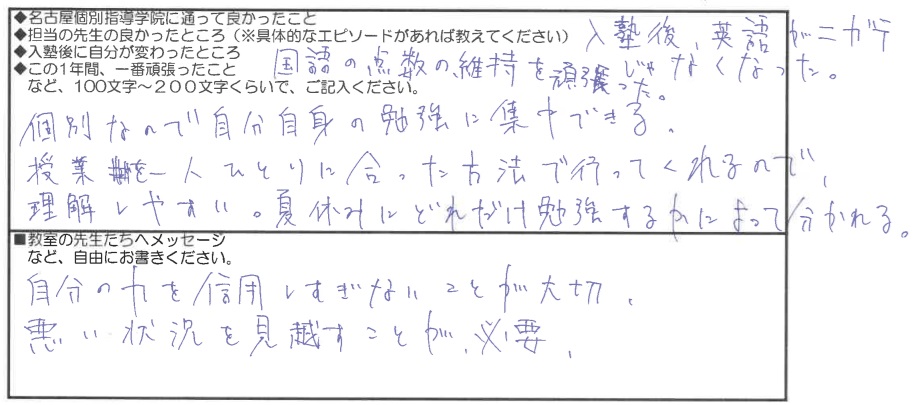 ◆名古屋個別指導学院に通って良かったこと
◆担当の先生の良かったところ（※具体的なエピソードがあれば教えてください）
◆入塾後に自分が変わったところ
◆この1年間、一番頑張ったこと
など、100文字～200文字くらいで、ご記入ください。
入塾後、英語がニガテ
じゃなくなった。
国語の点数の維持を頑張った。
個別なので自分自身の勉強に集中できる。
授業を一人ひとりに合った方法で行ってくれるので、
理解しやすい。夏休みにどれだけ勉強するかによって分かれる。
■教室の先生たちへメッセージ
など、自由にお書きください。
自分の力を信用しすぎないことが大切、
悪い状況を見越すことが、必要、